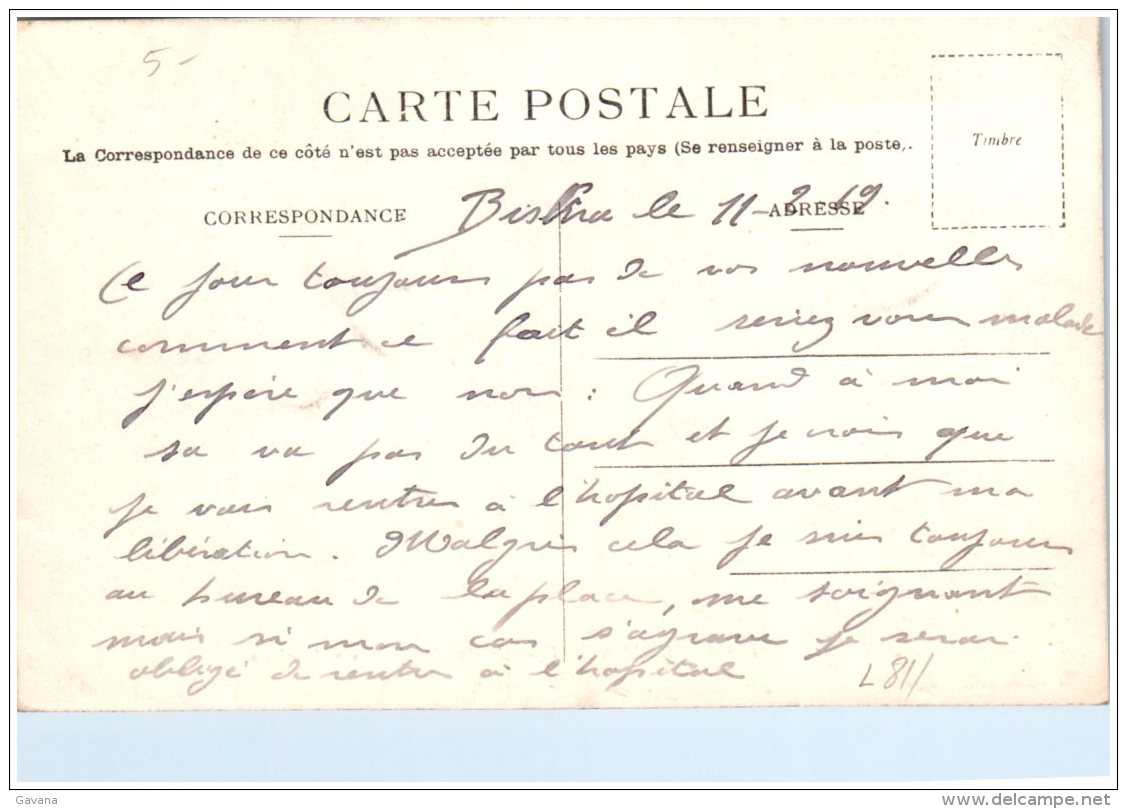 5-
CARTE POSTALE
La Correspondance de ce côté n'est pas acceptée par tous les pays (Se renseigner à la poste,.
Timbre
CORRESPONDANCE
ADRESSE
Biskra le 11-2-19.
Ce jour toujours pas de vos nouvelles
comment ce fait il seriez vous malade
j'espère que non : Quand à moi
sa va pas du tout et je crois que
je vais rentrer à l'hopital avant ma
libération. Malgrés cela je suis toujours
au bureau de la place, me soignant
mais si mon cas s'agrave je serai
obligé de rentrer à l'hopital
L811
Gavana
delcampe.net